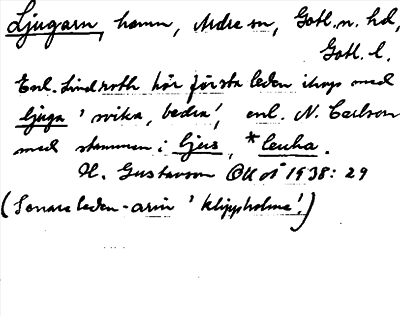 Ljugarn, hamn, Ardre sn, Gotl. n. hd,
Gotl. l.
Enl. Lindroth hör första leden ihop med
ljuga 'svika, bedra', enl. N. Carlson
med stammen i ljus, *leuha.
H. Gustavson OUoÅ 1938: 29
(Senare leden -arn 'klippholme'.)